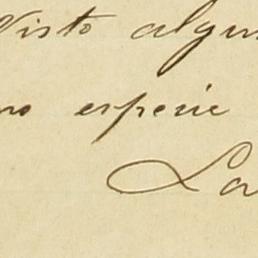 Visto algun
no especie
La